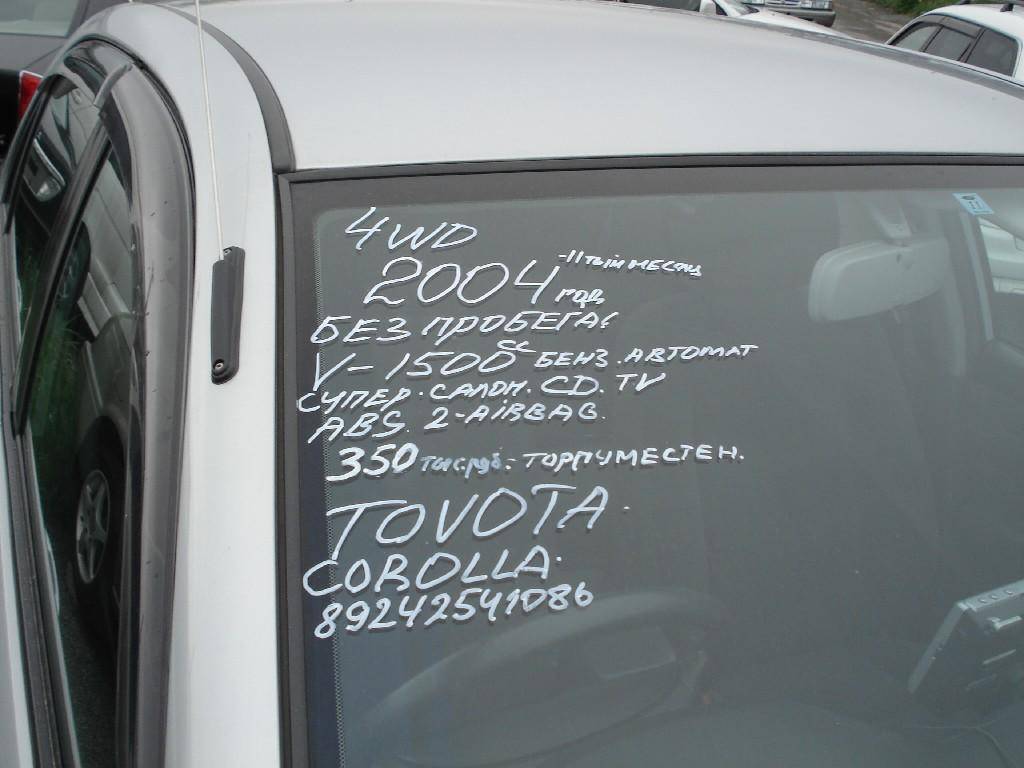 4WD
2004 год -11тый месяц
БЕЗ ПРОБЕГА!
V-1500 СС БЕНЗ. АВТОМАТ
СУПЕР. САЛОН. CD. TV
ABS. 2-AIRBAG.
350 тыс.руб. - ТОРГ УМЕСТЕН.
TOYOTA.
COROLLA.
89242541086